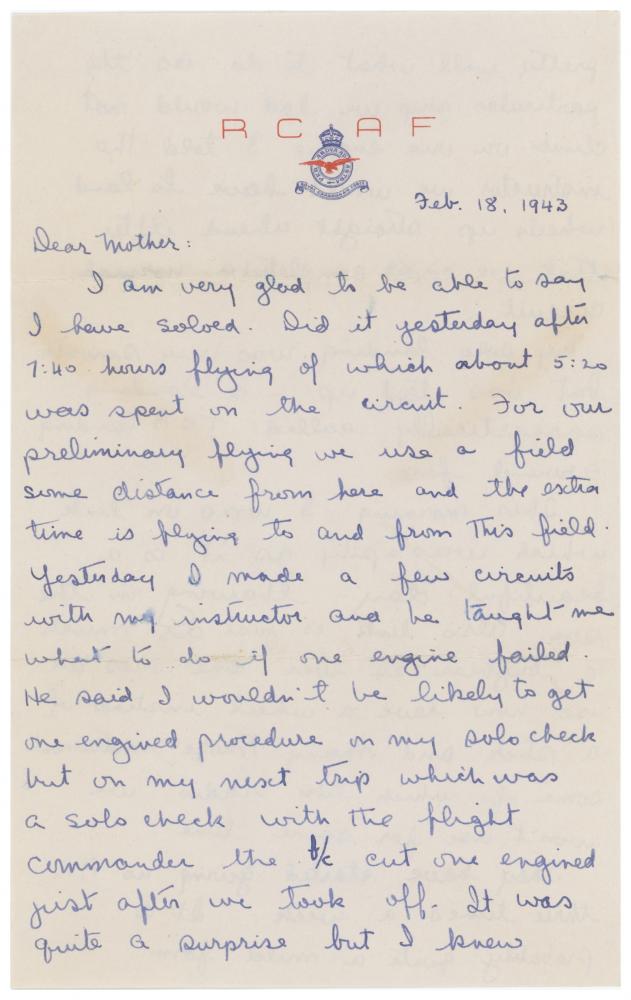 R C A F
Feb. 18, 1943
Dear Mother:
I am very glad to be able to say
I have soloed. Did it yesterday after
7:40 hours flying of which about 5:20
was spent on the circuit. For our
preliminary flying we use a field
some distance from here and the extra
time is flying to and from this field.
Yesterday I made a few circuits
with my instructor and he taught me
what to do if one engine failed.
He said I wouldn't be likely to get
one engined procedure on my solo check
but on my next trip which was
a solo check with the flight
commander the f/c cut one engined
just after we took off. It was
quite a surprise but I knew